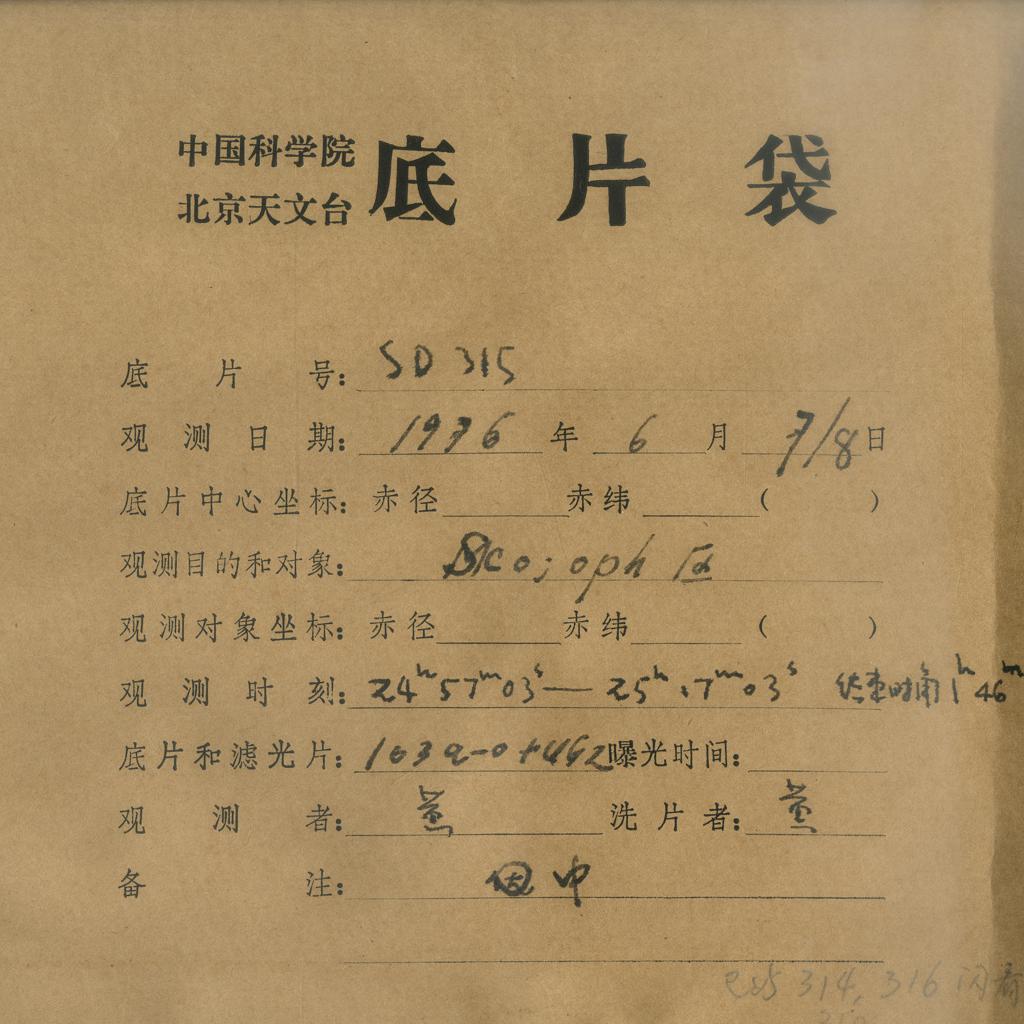 中国科学院
北京天文台 底片袋
底片号: SD 315
观测日期: 1976 年 6 月 7/8 日
底片中心坐标: 赤径 赤纬 ( )
观测目的和对象: Sco; oph
观测对象坐标: 赤径 赤纬 ( )
观测时刻: 24h57m03s — 25h17m03s 终束时角 1h46m
底片和滤光片: 103a-0+ 曝光时间:
观测者: 洗片者:
备注: 中
已与 314, 316 闪看